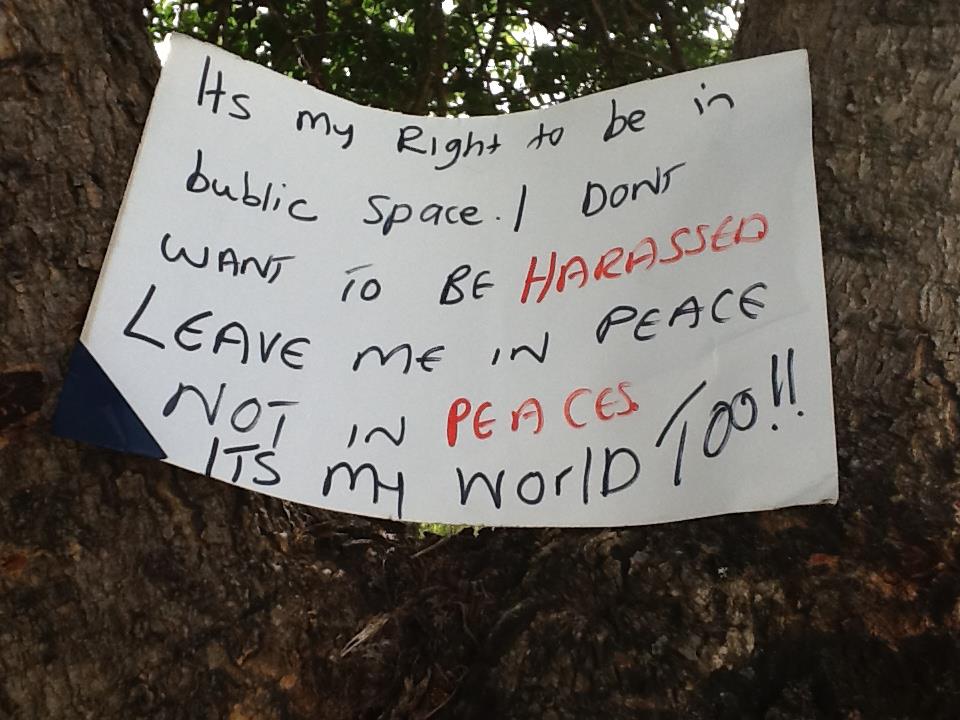 Its my Right to be in
bublic space. I DONT
WANT TO BE HARASSED
LEAVE ME IN PEACE
NOT IN PEACES.
ITS MY WORLD TOO!!